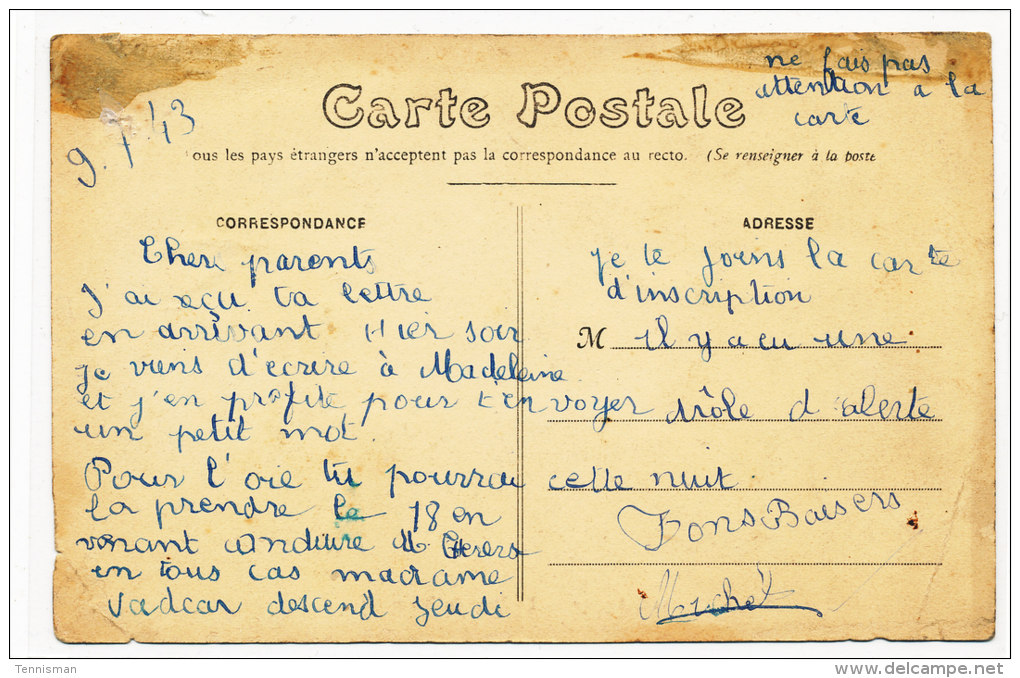 ne fais pas
attention a la
carte
Carte Postale
9.7.43
ous les pays étrangers n'acceptent pas la correspondance au recto. (Se renseigner à la poste
CORRESPONDANCE
Chere parents
J'ai reçu ta lettre
en arrivant Hier soir
Je viens d'écrire à Madeleine
et j'en profite pour t'envoyer
un petit mot.
Pour l'oie tu pourrai
la prendre le 18 en
venant conduire M
en tous cas madame
Vadcar descend Jeudi
ADRESSE
Je te joins la carte
d'inscription
M il y a eu une
drôle d'alerte
cette nuit.
Bons Baisers
Michel
Tennisman
www.delcampe.net